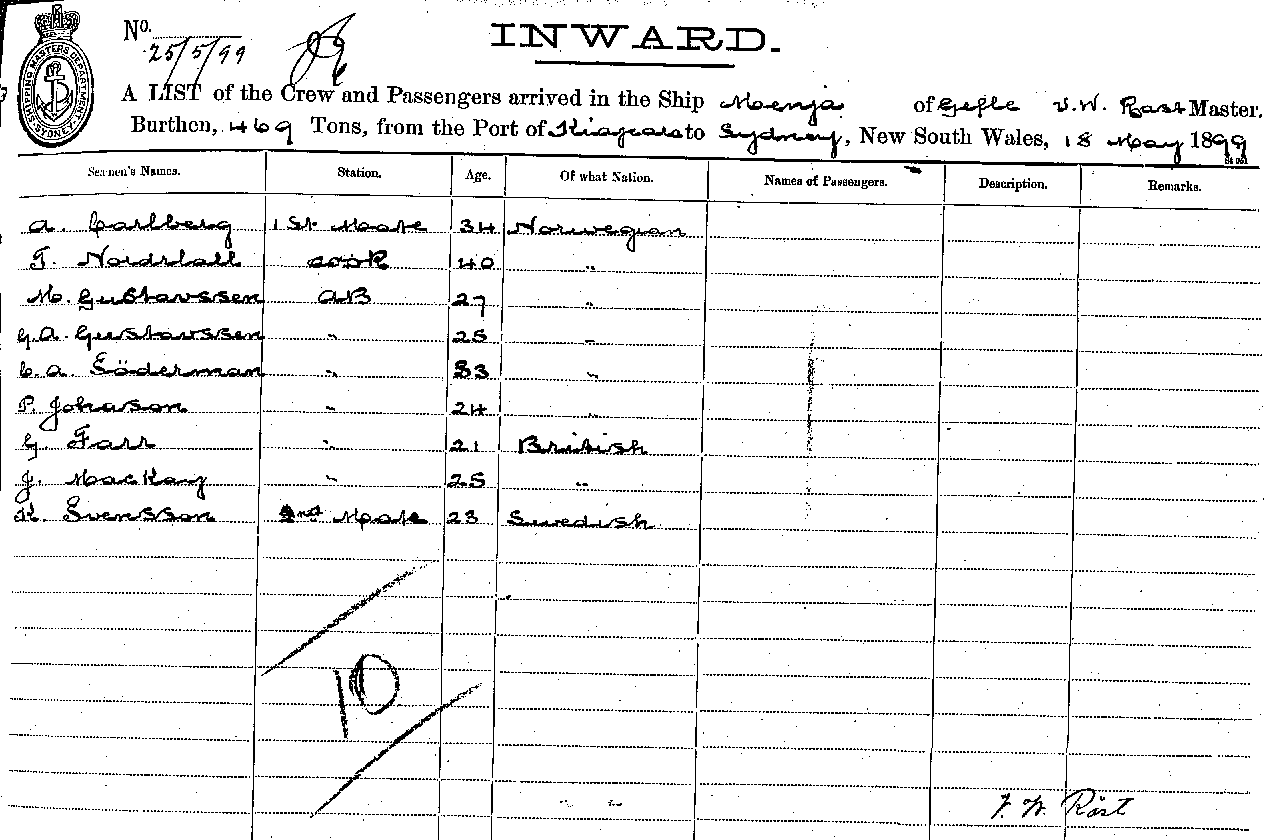 SHIPPING MASTERS DEPARTMENT. SYDNEY
No.
25/5/99
INWARD.
A LIST of the Crew and Passengers arrived in the Ship Menja of Gefle V.W. Rast Master.
Burthen, 469 Tons, from the Port of to Sydney, New South Wales, 18 May 1899
Seamen's Names. Station. Age. Of what Nation. Names of Passengers. Description. Remarks.
A. Carlberg 1st Mate 34 Norwegian
T. Nordstall cook 40 "
M. Gustavssen AB 27 "
G.A. Gustavssen " 25 "
C.A. Söderman " 33 "
P. Johnson " 24 "
G. Farr " 21 British
J. MacKay " 25 "
K. Svensson 2nd Mate 23 Swedish
10
F. W. Räst